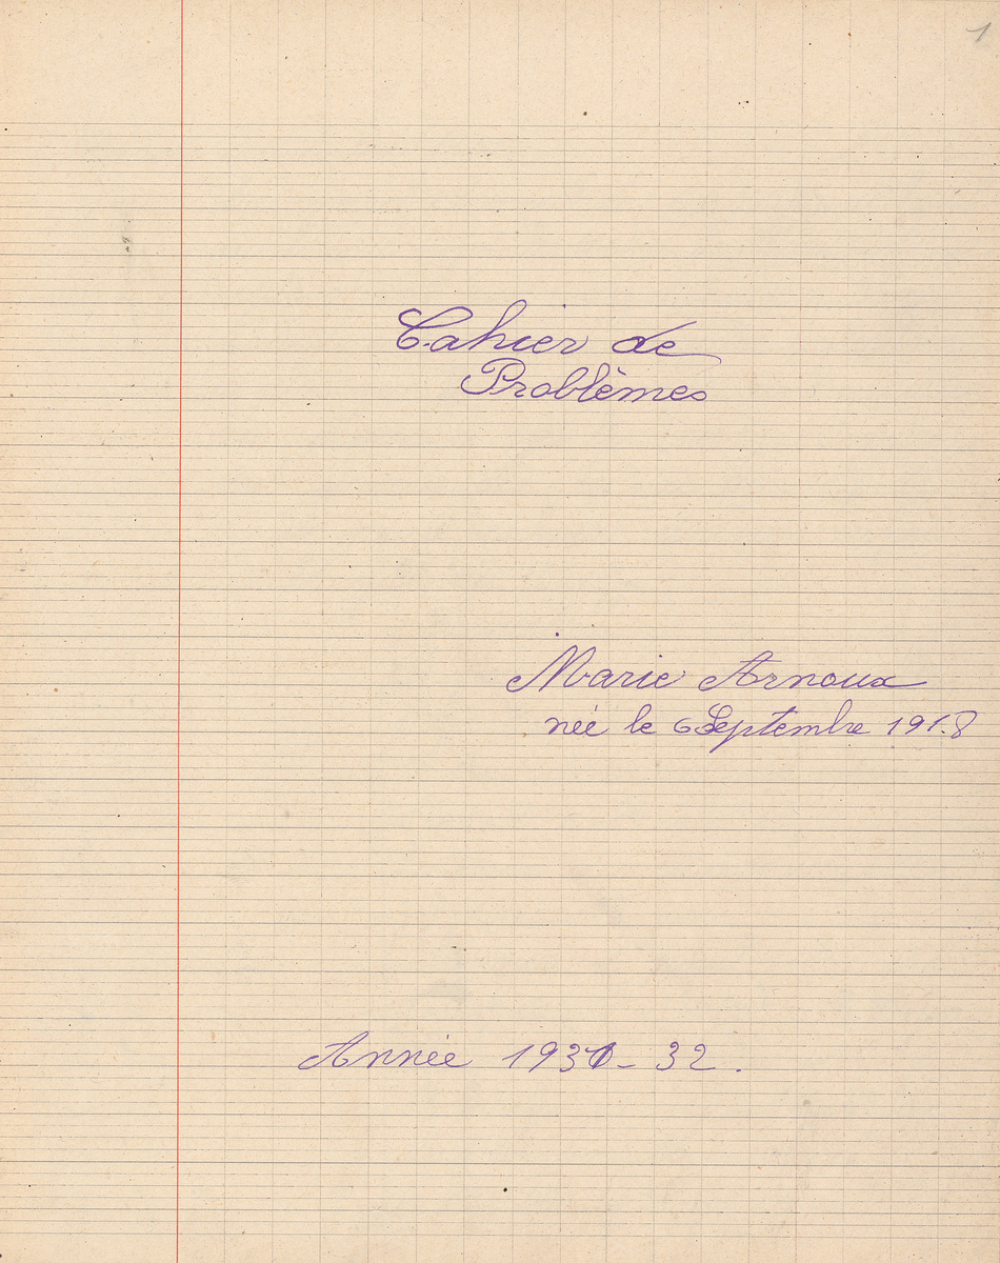 1
Cahier de
Problèmes
Marie Arnoux
née le 6 Septembre 1918
Année 1931-32.